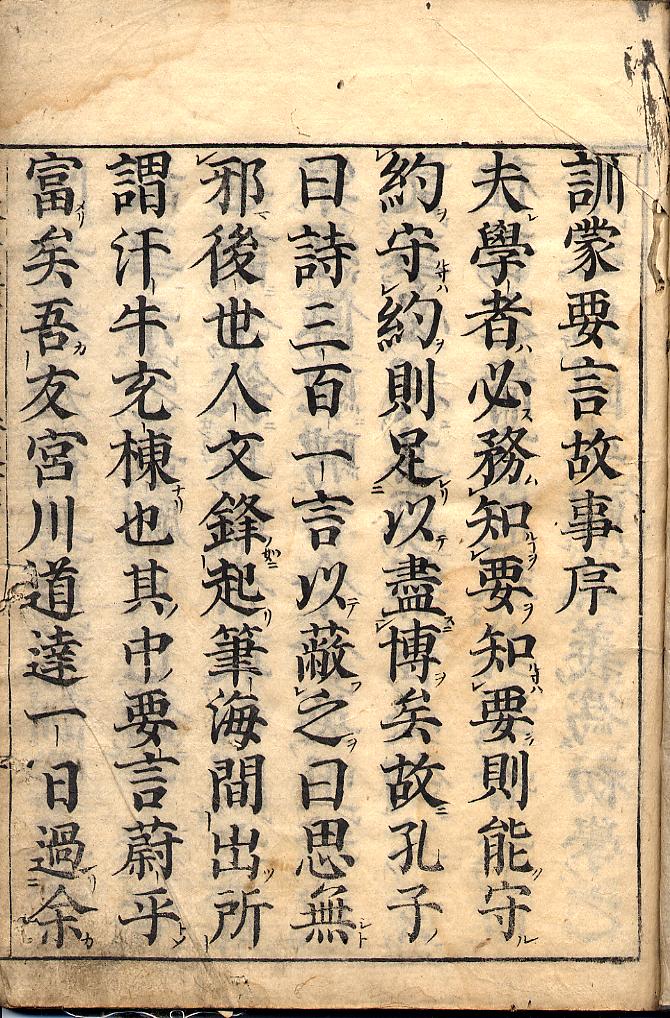 訓蒙要言故事序
夫學者必務知要知要則能守
約守約則足以盡博矣故孔子
曰詩三百一言以蔽之曰思無
邪後世人文鋒起筆海間出所
謂汗牛充棟也其中要言蔚乎
富矣吾友宮川道達一日過余